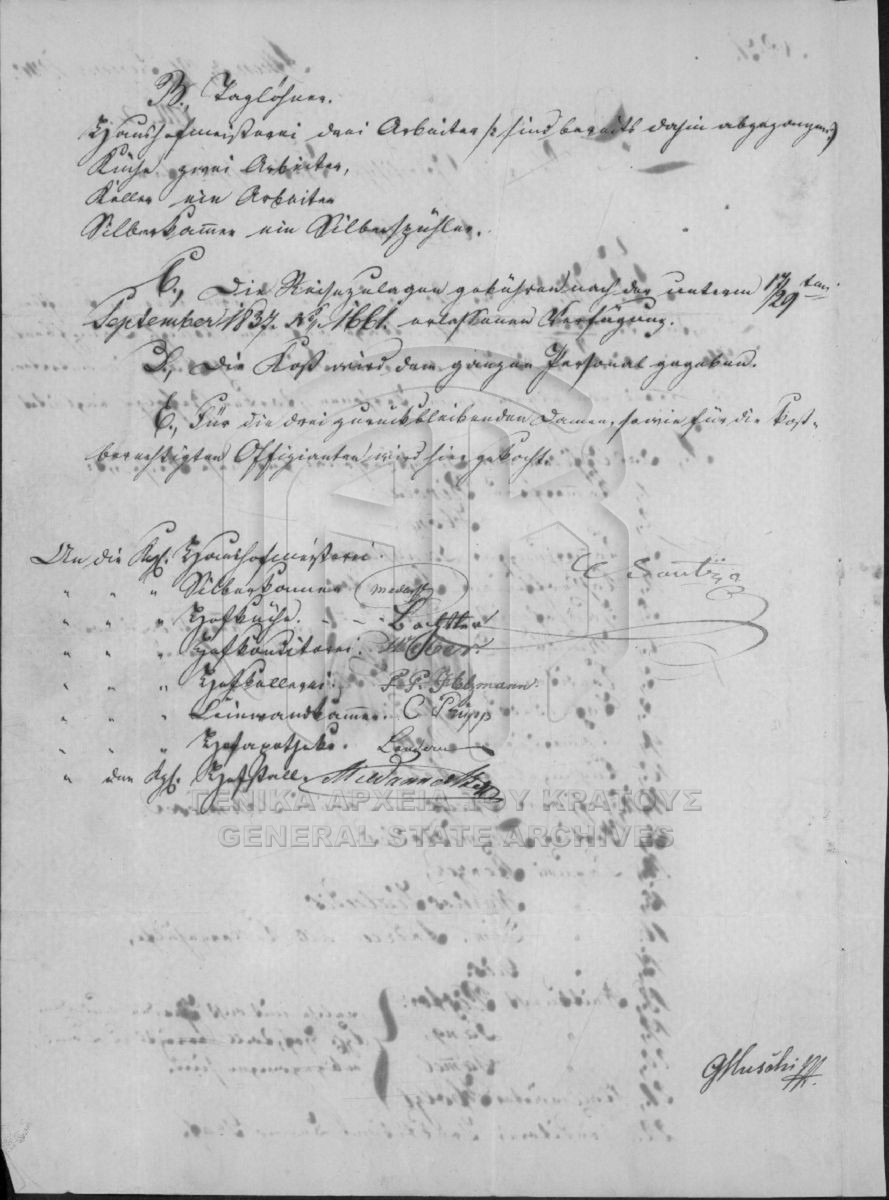 B., Taglöhner.
Haushofmeisterei drei Arbeiter /: sind bereits dahin abgegangen :/
Küche zwei Arbeiter,
Keller ein Arbeiter
Silberkammer ein Silberspühler.
C., Die Reisezulagen gebühren nach der unterm 17/29 ten
September 1837. No. 1661. erlassenen Verfügung.
D., Die Kost wird dem ganzen Personal gegeben.
E., Für die drei zurückbleibenden Damen, sowie für die kost-
berechtigten Offizianten wird hier gekocht.
An die Kgl. Haushofmeisterei.
" " " Silberkammer
" " " Hofküche.
" " " Hofkonditorei.
" " " Hofkellerei.
" " " Leinwandkammer. C
" " " Hofapotheke.
" den Kgl. Hofstall
ΓΕΝΙΚΑ ΑΡΧΕΙΑ ΤΟΥ ΚΡΑΤΟΥΣ
GENERAL STATE ARCHIVES